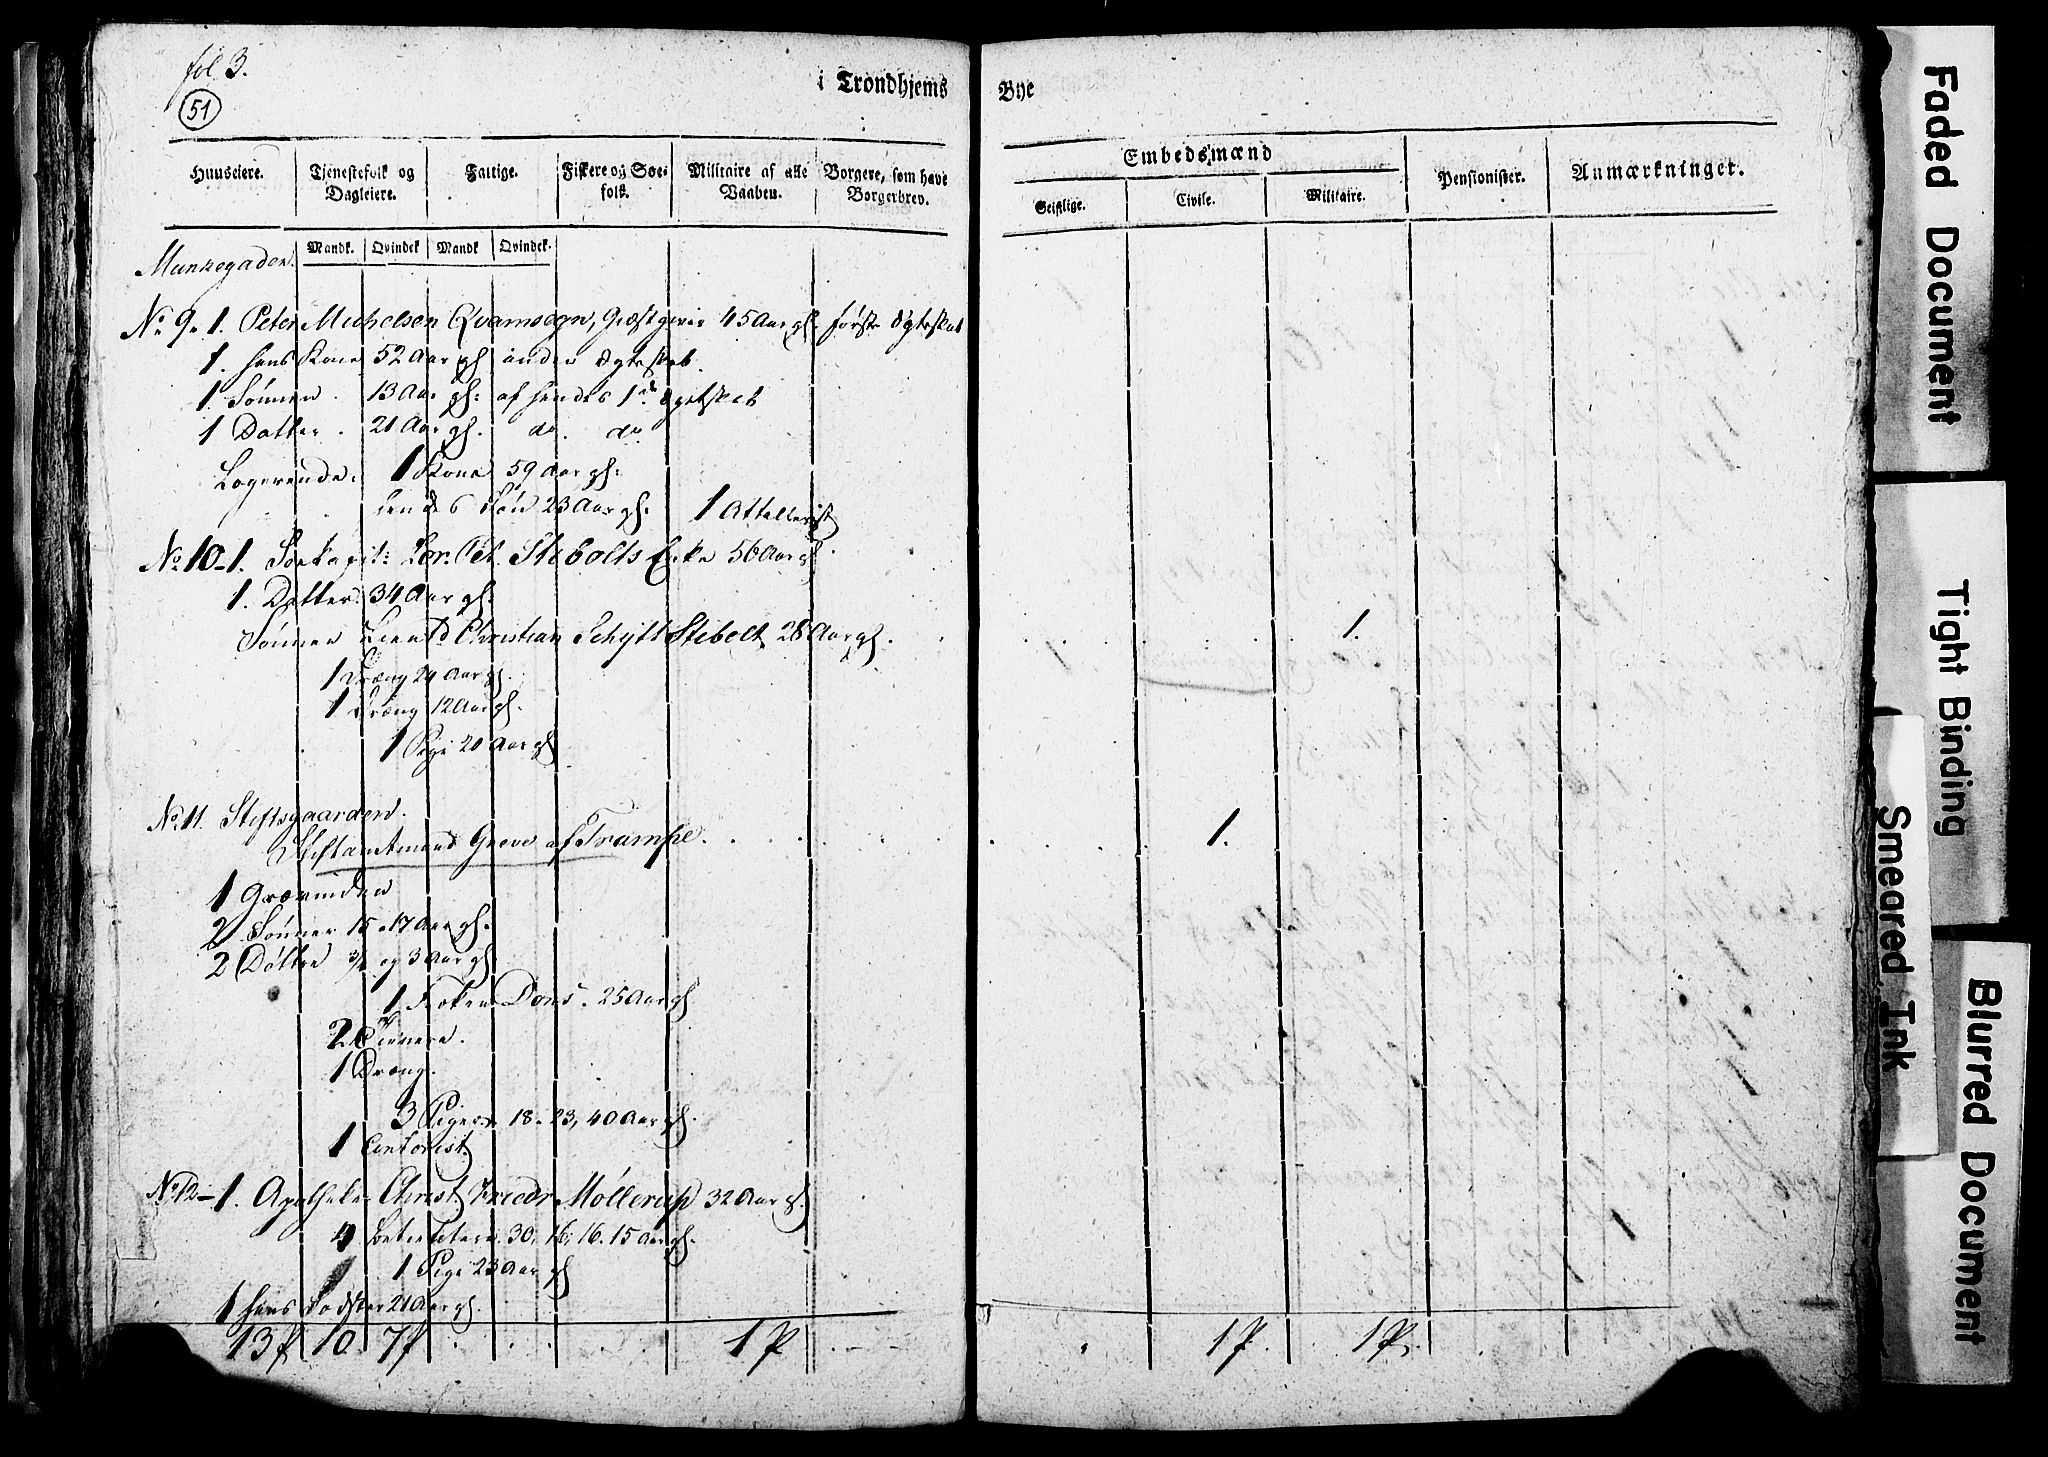 fol. 3.
51
i Trondhjems Bye
Huuseiere. Tjenestefolk og Dagleiere. Fattige. Fiskere og Søefolk. Militaire af alle Vaaben. Borgere, som have Borgerbrev. Embedsmænd Pensionister. Anmærkninger.
Geistlige. Civile. Militaire.
Mandk. Qvindek Mandk Qvindek.
Munkegaden.
No 9. 1. Peter Michelsen Qvamsogn, Giæstgiver 45 Aar gl. første Ægteskab
1. hans Kone 52 Aar gl anden Ægteskab.
1. Sønnen. 13 Aar gl: af hendes 1ste Ægteskab
1 Datter. 21 Aar gl. do. do
Logerende. 1 Kone 59 Aar gl:
hendes Søn 23 Aar gl. 1 Attellerist
No 10-1. Søekapit: Lor. Pet. Stibolts Enke 56 Aar gl.
1. Datter. 34 Aar gl.
Sønnen Lieut Christian Schytt Stibolt 28 Aar gl. 1.
1 Dræng 24 Aar gl.
1 Dræng 12 Aar gl.
1 Pige 20 Aar gl
No 11. Stiftsgaarden.
Stiftamtmand Greve af Trampe. 1.
1 Grævinden
2 Sønner 15. 17 Aar gl.
2 Døttre 3/4 og 3 Aar gl
1 Frøken Dons. 25 Aar gl
2 Tienere.
1 Dræng.
3 Piger 18. 23, 40 Aar gl.
1 Contorist.
No 12-1. Apotheker Christ Friedr Møllerup 32 Aar gl.
4 30. 16. 16. 15 Aar gl.
1 Pige 23 Aar gl
1 hans Søster 21 Aar gl.
13 p 10. 7 p 1 P 1 P. 1 P.
Faded Document
Tight Binding
Smeared Ink
Blurred Document